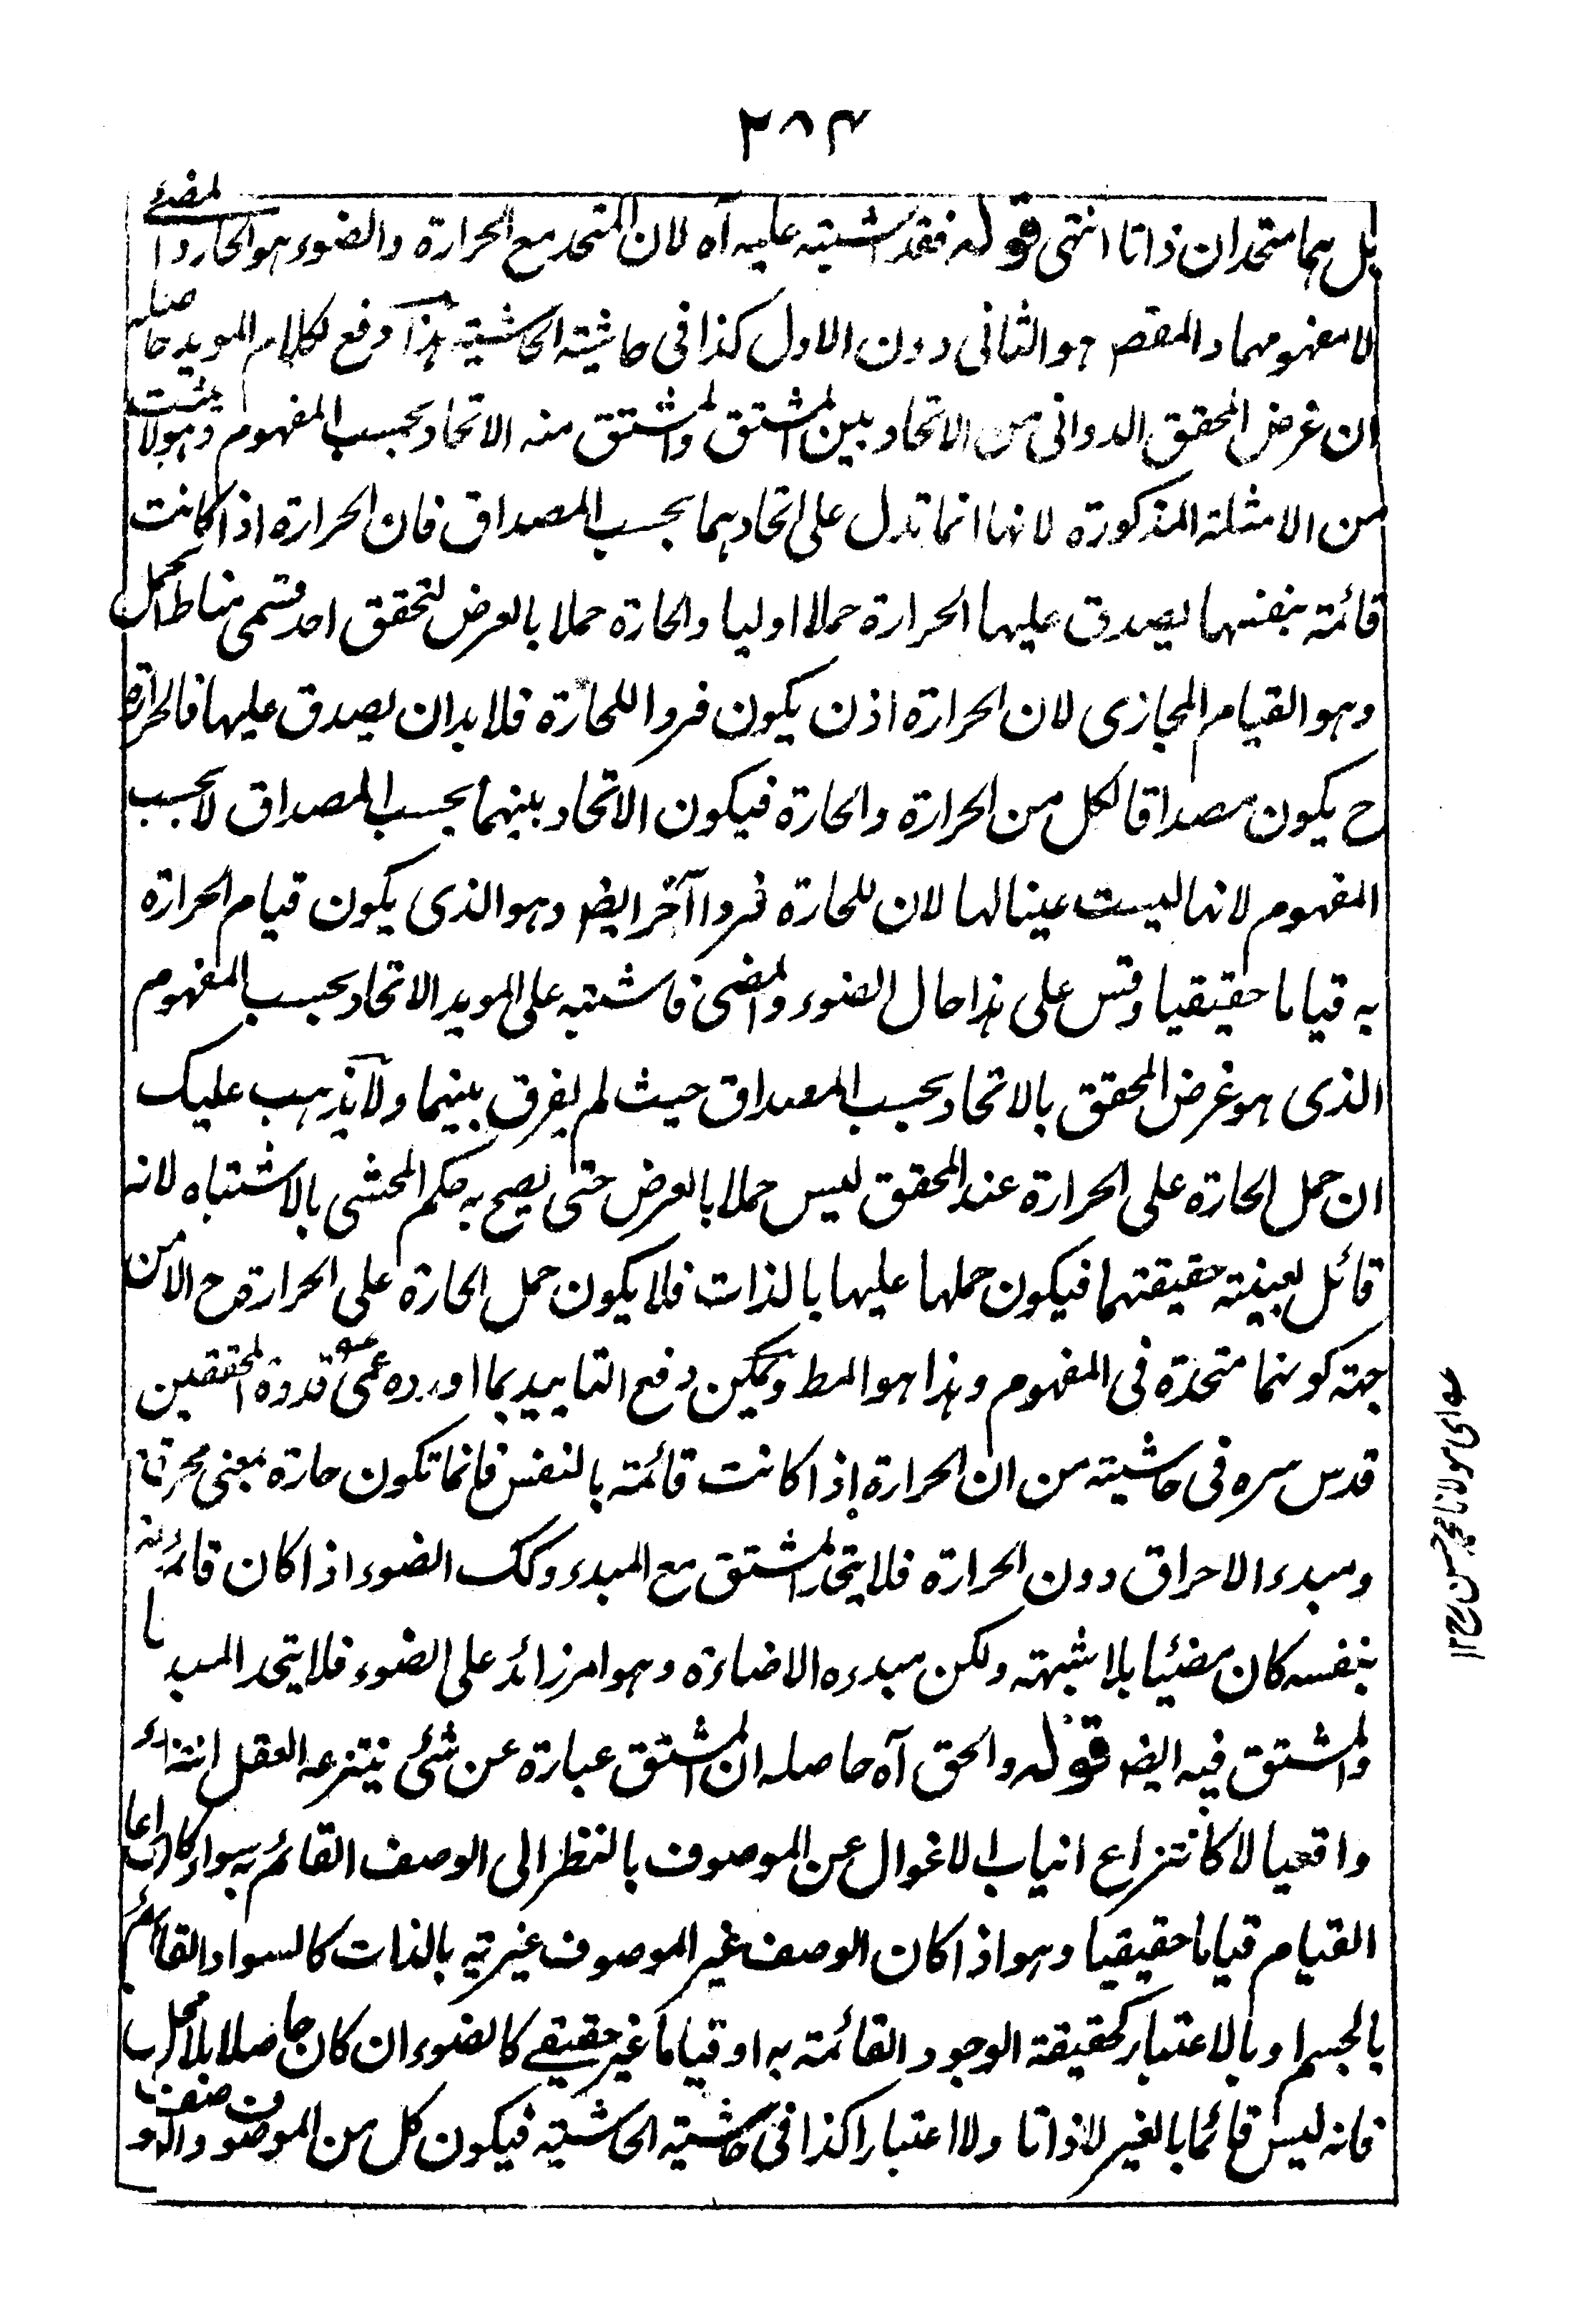 ٢٨٤
بل هما متحدان ذاتا انتهى قوله فقد اشتبه عليه آه لان المتحد مع الحرارة والضوء هو الحار والمضئ
لا مفهومهما والمقصر هو الثانى دون الاول كذا فى حاشية الحاشية هذا دفع لكلام المويد حاصله
ان غرض المحقق الدوانى من الاتحاد بين المشتق والمشتق منه الاتحاد بحسب المفهوم وهو لا يثبت
من الامثلة المذكورة لانها انما تدل على اتحادهما بحسب المصداق فان الحرارة اذا كانت
قائمة بنفسها يصدق عليها الحرارة حملا اوليا والحارة حملا بالعرض لتحقق احد قسمى مناط الحمل
وهو القيام المجازى لان الحرارة اذن يكون فردا للحارة فلا بد ان يصدق عليها فالحرارة
ح يكون مصداقا لكل من الحرارة والحارة فيكون الاتحاد بينهما بحسب المصداق لا بحسب
المفهوم لانها ليست عينا لها لان للحارة فردا آخر ايض وهو الذى يكون قيام الحرارة
به قياما حقيقيا وقس على هذا حال الضوء والمضئ فاشتبه على المويد الاتحاد بحسب المفهوم
الذى هو غرض المحقق بالاتحاد بحسب المصداق حيث لم يفرق بينهما ولا يذهب عليك
ان حمل الحارة على الحرارة عند المحقق ليس حملا بالعرض حتى يصح به حكم المحشى بالاشتباه لانه
قائل بعينية حقيقتهما فيكون حملها عليها بالذات فلا يكون حمل الحارة على الحرارة ح الا من
جهة كونهما متحدة فى المفهوم وهذا هو المط ويمكن دفع التاييد بما اورده عمى قدوة المحققين
قدس سره فى حاشيته من ان الحرارة اذا كانت قائمة بالنفس فانما تكون حارة بمعنى محرقة
ومبدء الاحراق دون الحرارة فلا يتحد المشتق مع المبدء وكك الضوء اذا كان قائما
بنفسه كان مضئيا بلا شبهة ولكن مبدءه الاضاءة وهو امر زائد على الضوء فلا يتحد المبدء
والمشتق فيه ايض قوله والحق آه حاصله ان المشتق عبارة عن شئ ينتزعه العقل انتزاعا
واقعيا لا كانتزاع انياب الاغوال عن الموصوف بالنظر الى الوصف القائم به سواء كان
القيام قياما حقيقيا وهو اذا كان الوصف غير الموصوف غيرية بالذات كالسواد القائم
بالجسم او بالاعتبار كحقيقة الوجود القائمة به او قياما غير حقيقے كالضوء ان كان حاصلا بلا محل
فانه ليس قائما بالغير لا ذاتا ولا اعتبارا كذا فى حاشية الحاشية فيكون كل من الموصوف والوصف
اى مولانا محمد حسن رح ١٢